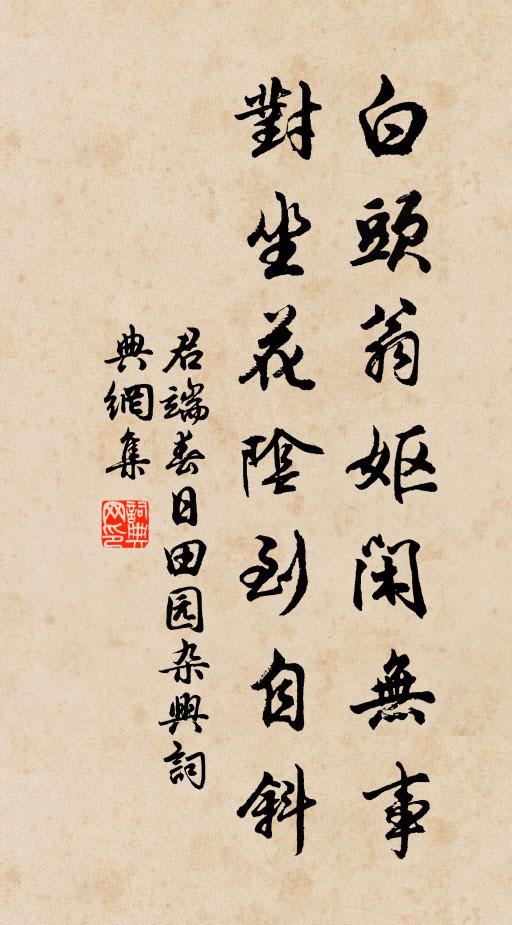 白頭翁妪閑無事
對坐花陰到自斜
君端春日田园杂興詞
典網集
詞典網印